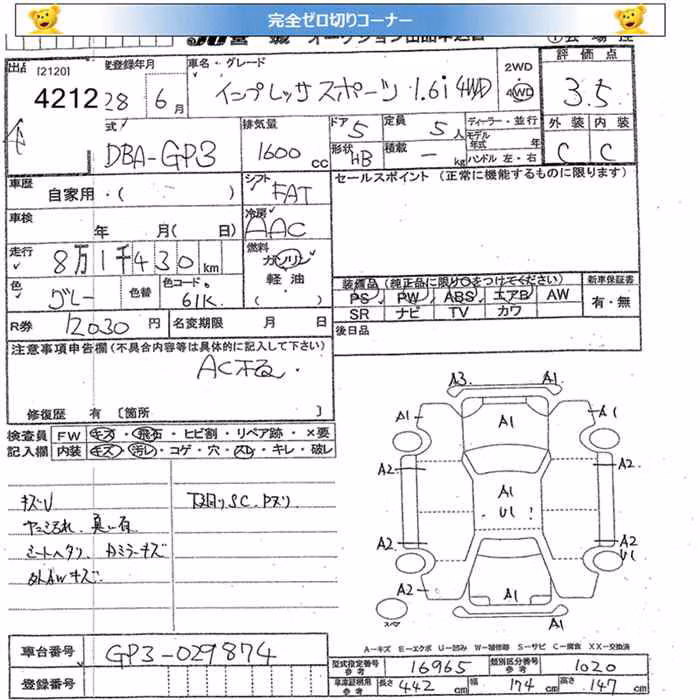 完全ゼロ切りコーナー
出品 [2120] 登録年月 車名・グレード 2WD 評価点
4212 28 6月 インプレッサスポーツ・1.6i 4WD 4WD 3.5
式 排気量 ドア 5 定員 5人 ディーラー・並行 外装 内装
DBA-GP3 1600cc 形状 HB 積載 — kg モデル年式 年 ハンドル 左・右 C C
車歴 自家用・( ) シフト FAT セールスポイント (正常に機能するものに限ります)
車検 年 月( 日) 冷房 AAC
走行 8万1千430km 燃料 ガソリン 軽油 ( )
色 グレー 色替 色コード 61K 装備品 (純正品に限り○をつけてください) 新車保証書
PS PW ABS エアB AW 有・無
SR ナビ TV カワ
R券 12030円 名変期限 月 日 後日品
注意事項申告欄 (不具合内容等は具体的に記入して下さい)
AC不良・
修復歴 有 〔箇所 〕
検査員 FW キズ・飛石・ヒビ割・リペア跡・×要
記入欄 内装 キズ・汚レ・コゲ・穴・スレ・キレ・破レ
キズU 下廻りSC.Pズリ
シートヘタリ
A3 A1
A1 A1 A1
A2 A2
A1
U1
A2 A2
U1
A2 A1
A1
スペア
A-キズ E-エクボ U-凹み W-補修跡 S-サビ C-腐食 XX-交換済
車台番号 GP3-029874
型式指定番号 参考 16965 類別区分番号 参考 1020
登録番号
車庫証明用 参考 長さ 442cm 幅 174cm 高さ 147cm